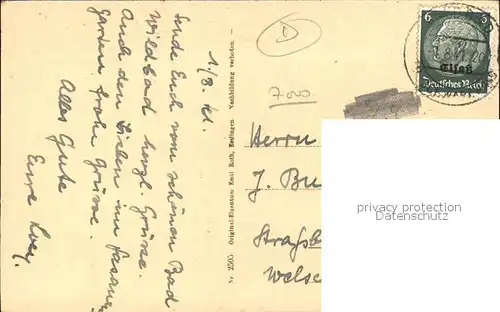 1/8. 41.
Sende Euch vom schönen Bad
Wildbad herzl. Grüsse.
Auch den Lieben im Fasanen
garten frohe Grüsse.
Alles Gute
Eure
Nr 2595 Original-Eigentum Emil Roth, Esslingen Nachbildung verboten
7200
6
Elsaß
Deutsches Reich
Herrn
J. Bu
Straßb
Welse
privacy protection
Datenschutz